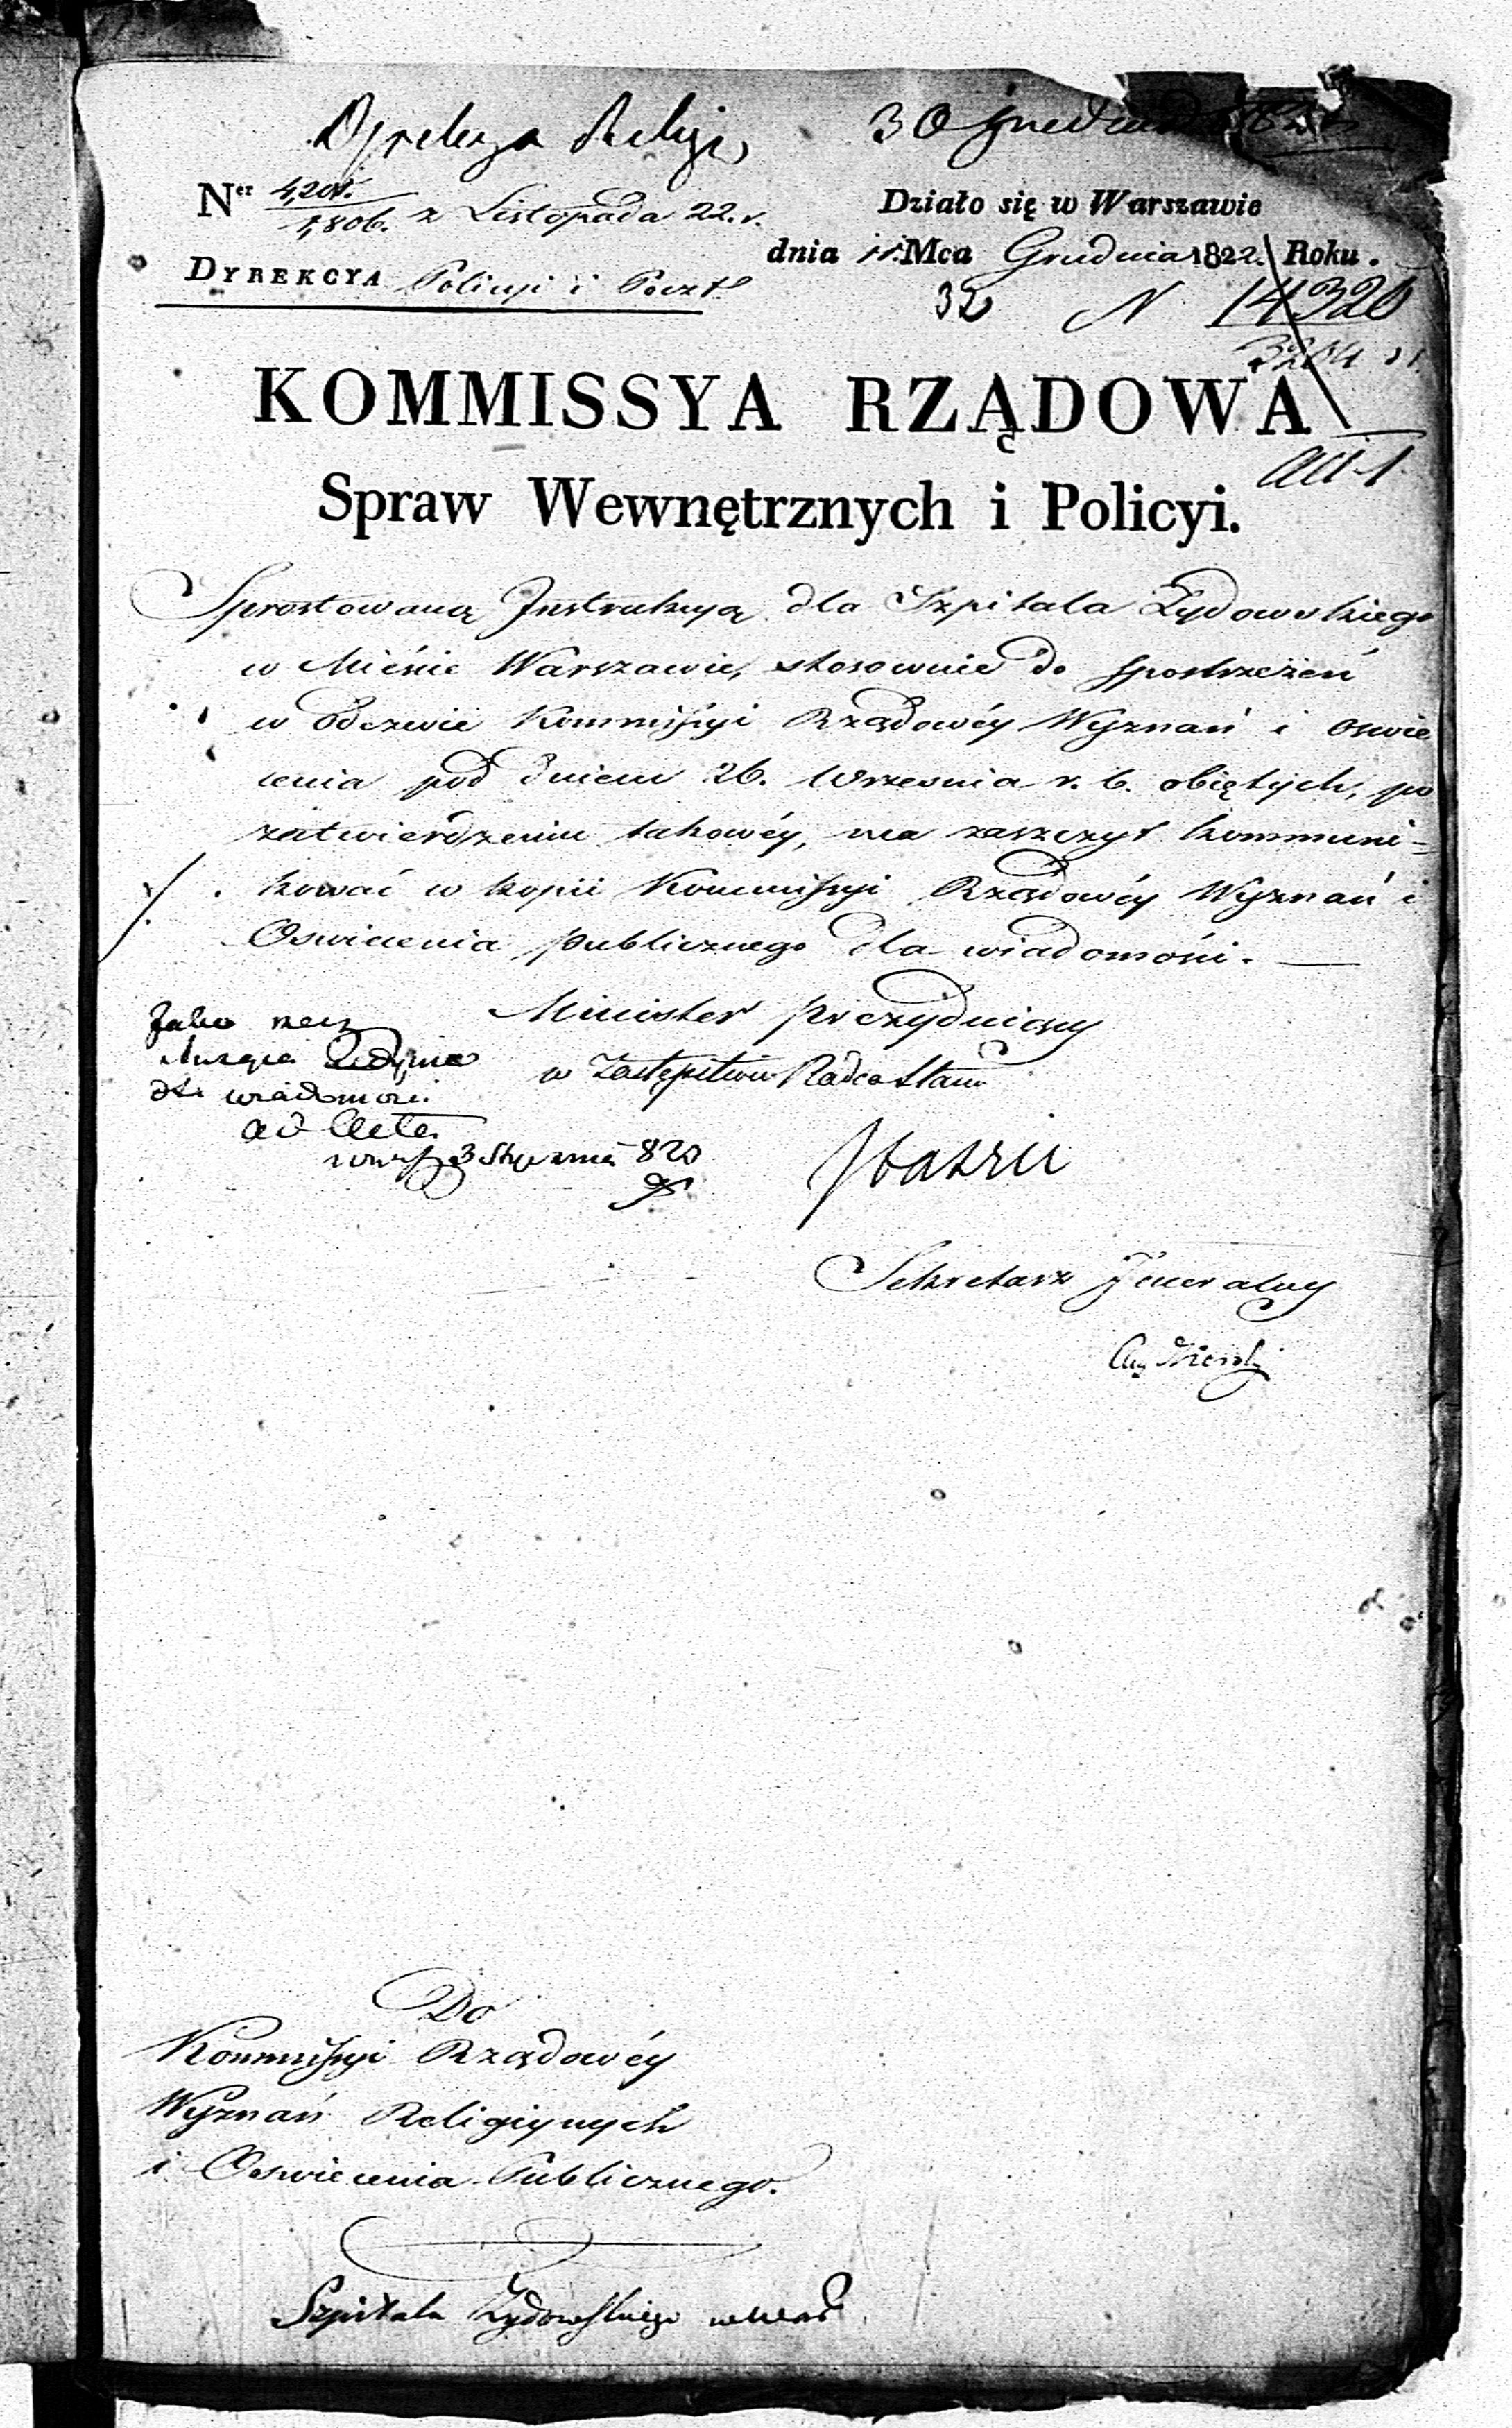 Dyrekcya Religij 30 Grudnia
Ner 4,201.
1,806. z Listopada 22. r.
Działo się w Warszawie
dnia 11. Mca Grudnia 1822. Roku.
DYREKCYA Policyi i Poczt
32 N 14320
3204
KOMMISSYA RZĄDOWA
ad 1
Spraw Wewnętrznych i Policyi.
Sprostowaną Instrukcyą dla Szpitala Żydowskiego
w Mieście Warszawie, stosownie do spostrzeżeń
w odezwie Kommissyi Rządowéy Wyznań i oswie
cenia pod dniem 26. Wrzesnia r. b. obiętych, po
zatwierdzeniu takowéy, ma zaszczyt kommuni-
kować w kopii Kommissyi Rządowéy Wyznań i
Oswiecenia publicznego dla wiadomości.
Minister Prezyduiący
w Zastępstwie Radca Stanu
Jako rzecz
służąca Jedynie
dla wiadomości.
ad Acta
3 Stycznia 823
Staszic
Sekretarz Jeneralny
Do
Kommissyi Rządowéy
Wyznań Religiynych
i Oswiecenia Publicznego.
Szpitala Żydowskiego